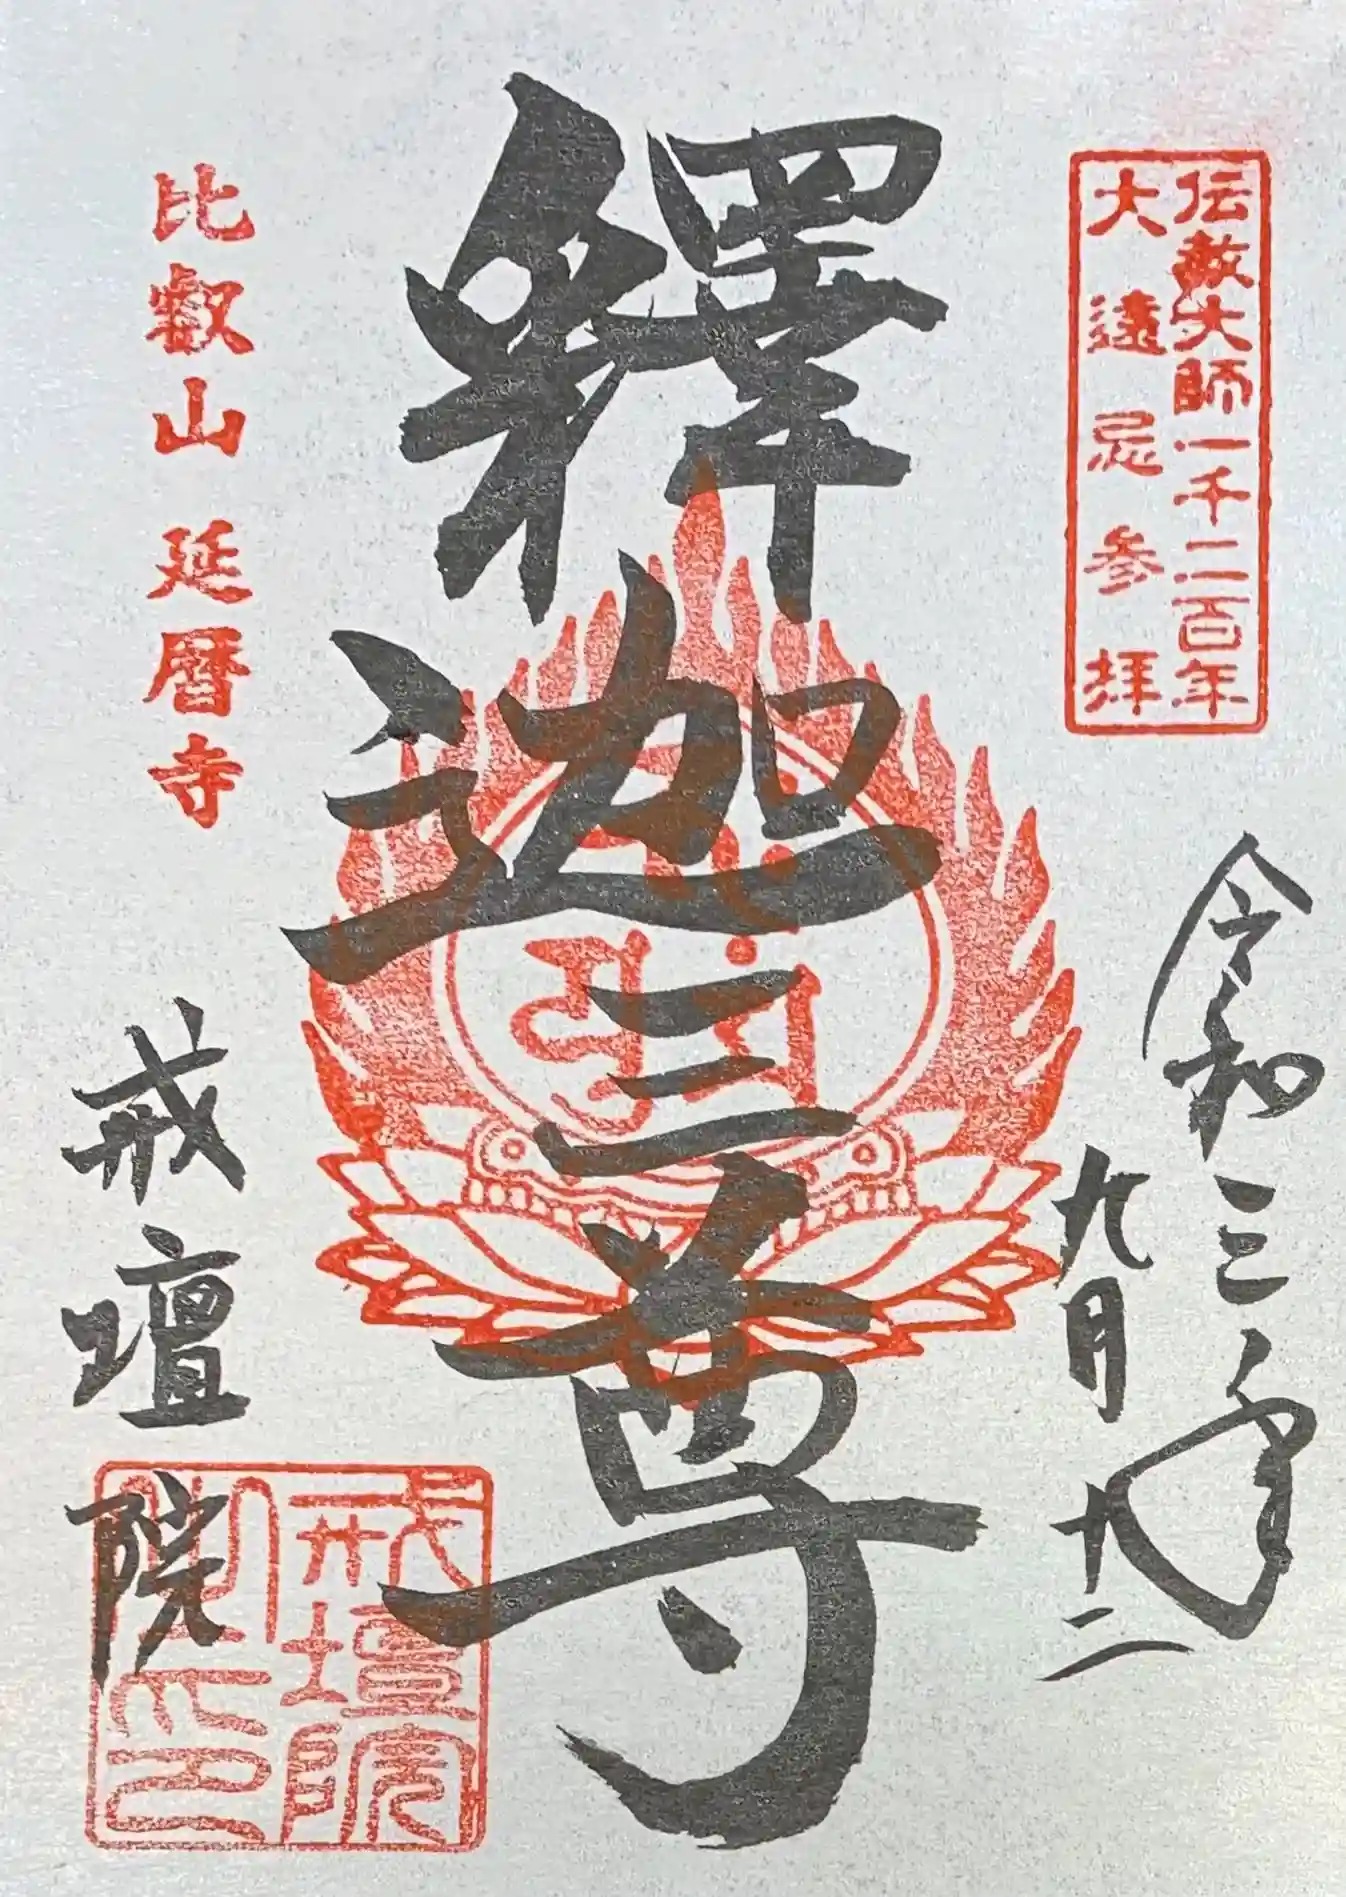 伝教大師一千二百年
大遠忌参拝
令和三年
九月
釋迦三尊
比叡山 延暦寺
戒壇院
戒壇院
之印